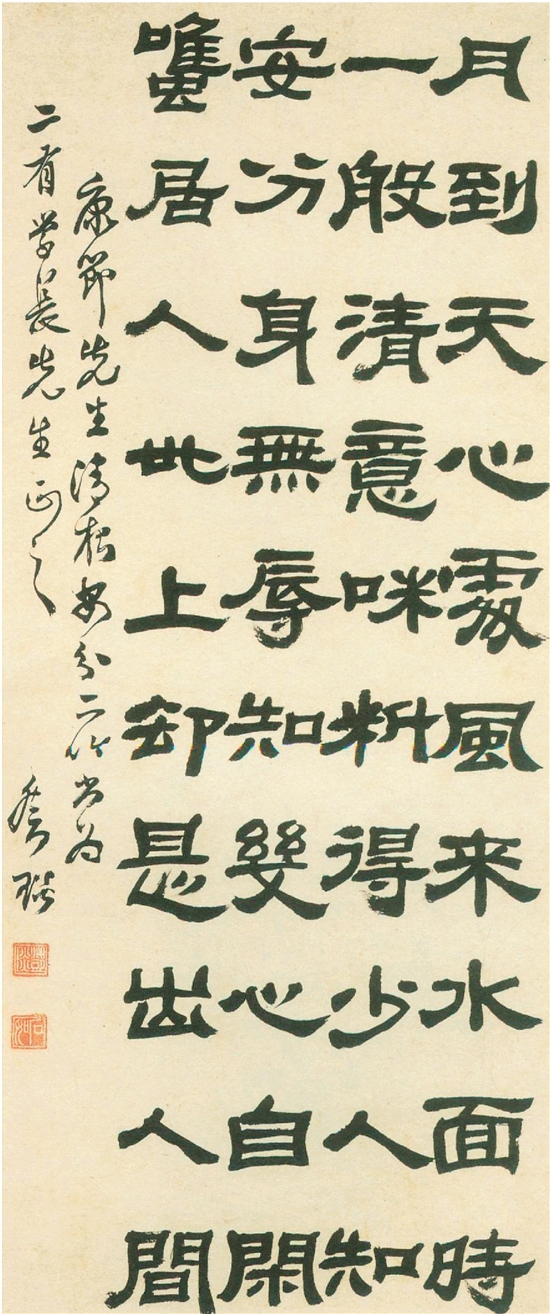 月到天心處風来水面時
一般清意味料得少人知
安分身無辱知幾心自閑
雖居人世上却是出人間
康節先生清夜安分二吟書為
二有学長先生正之